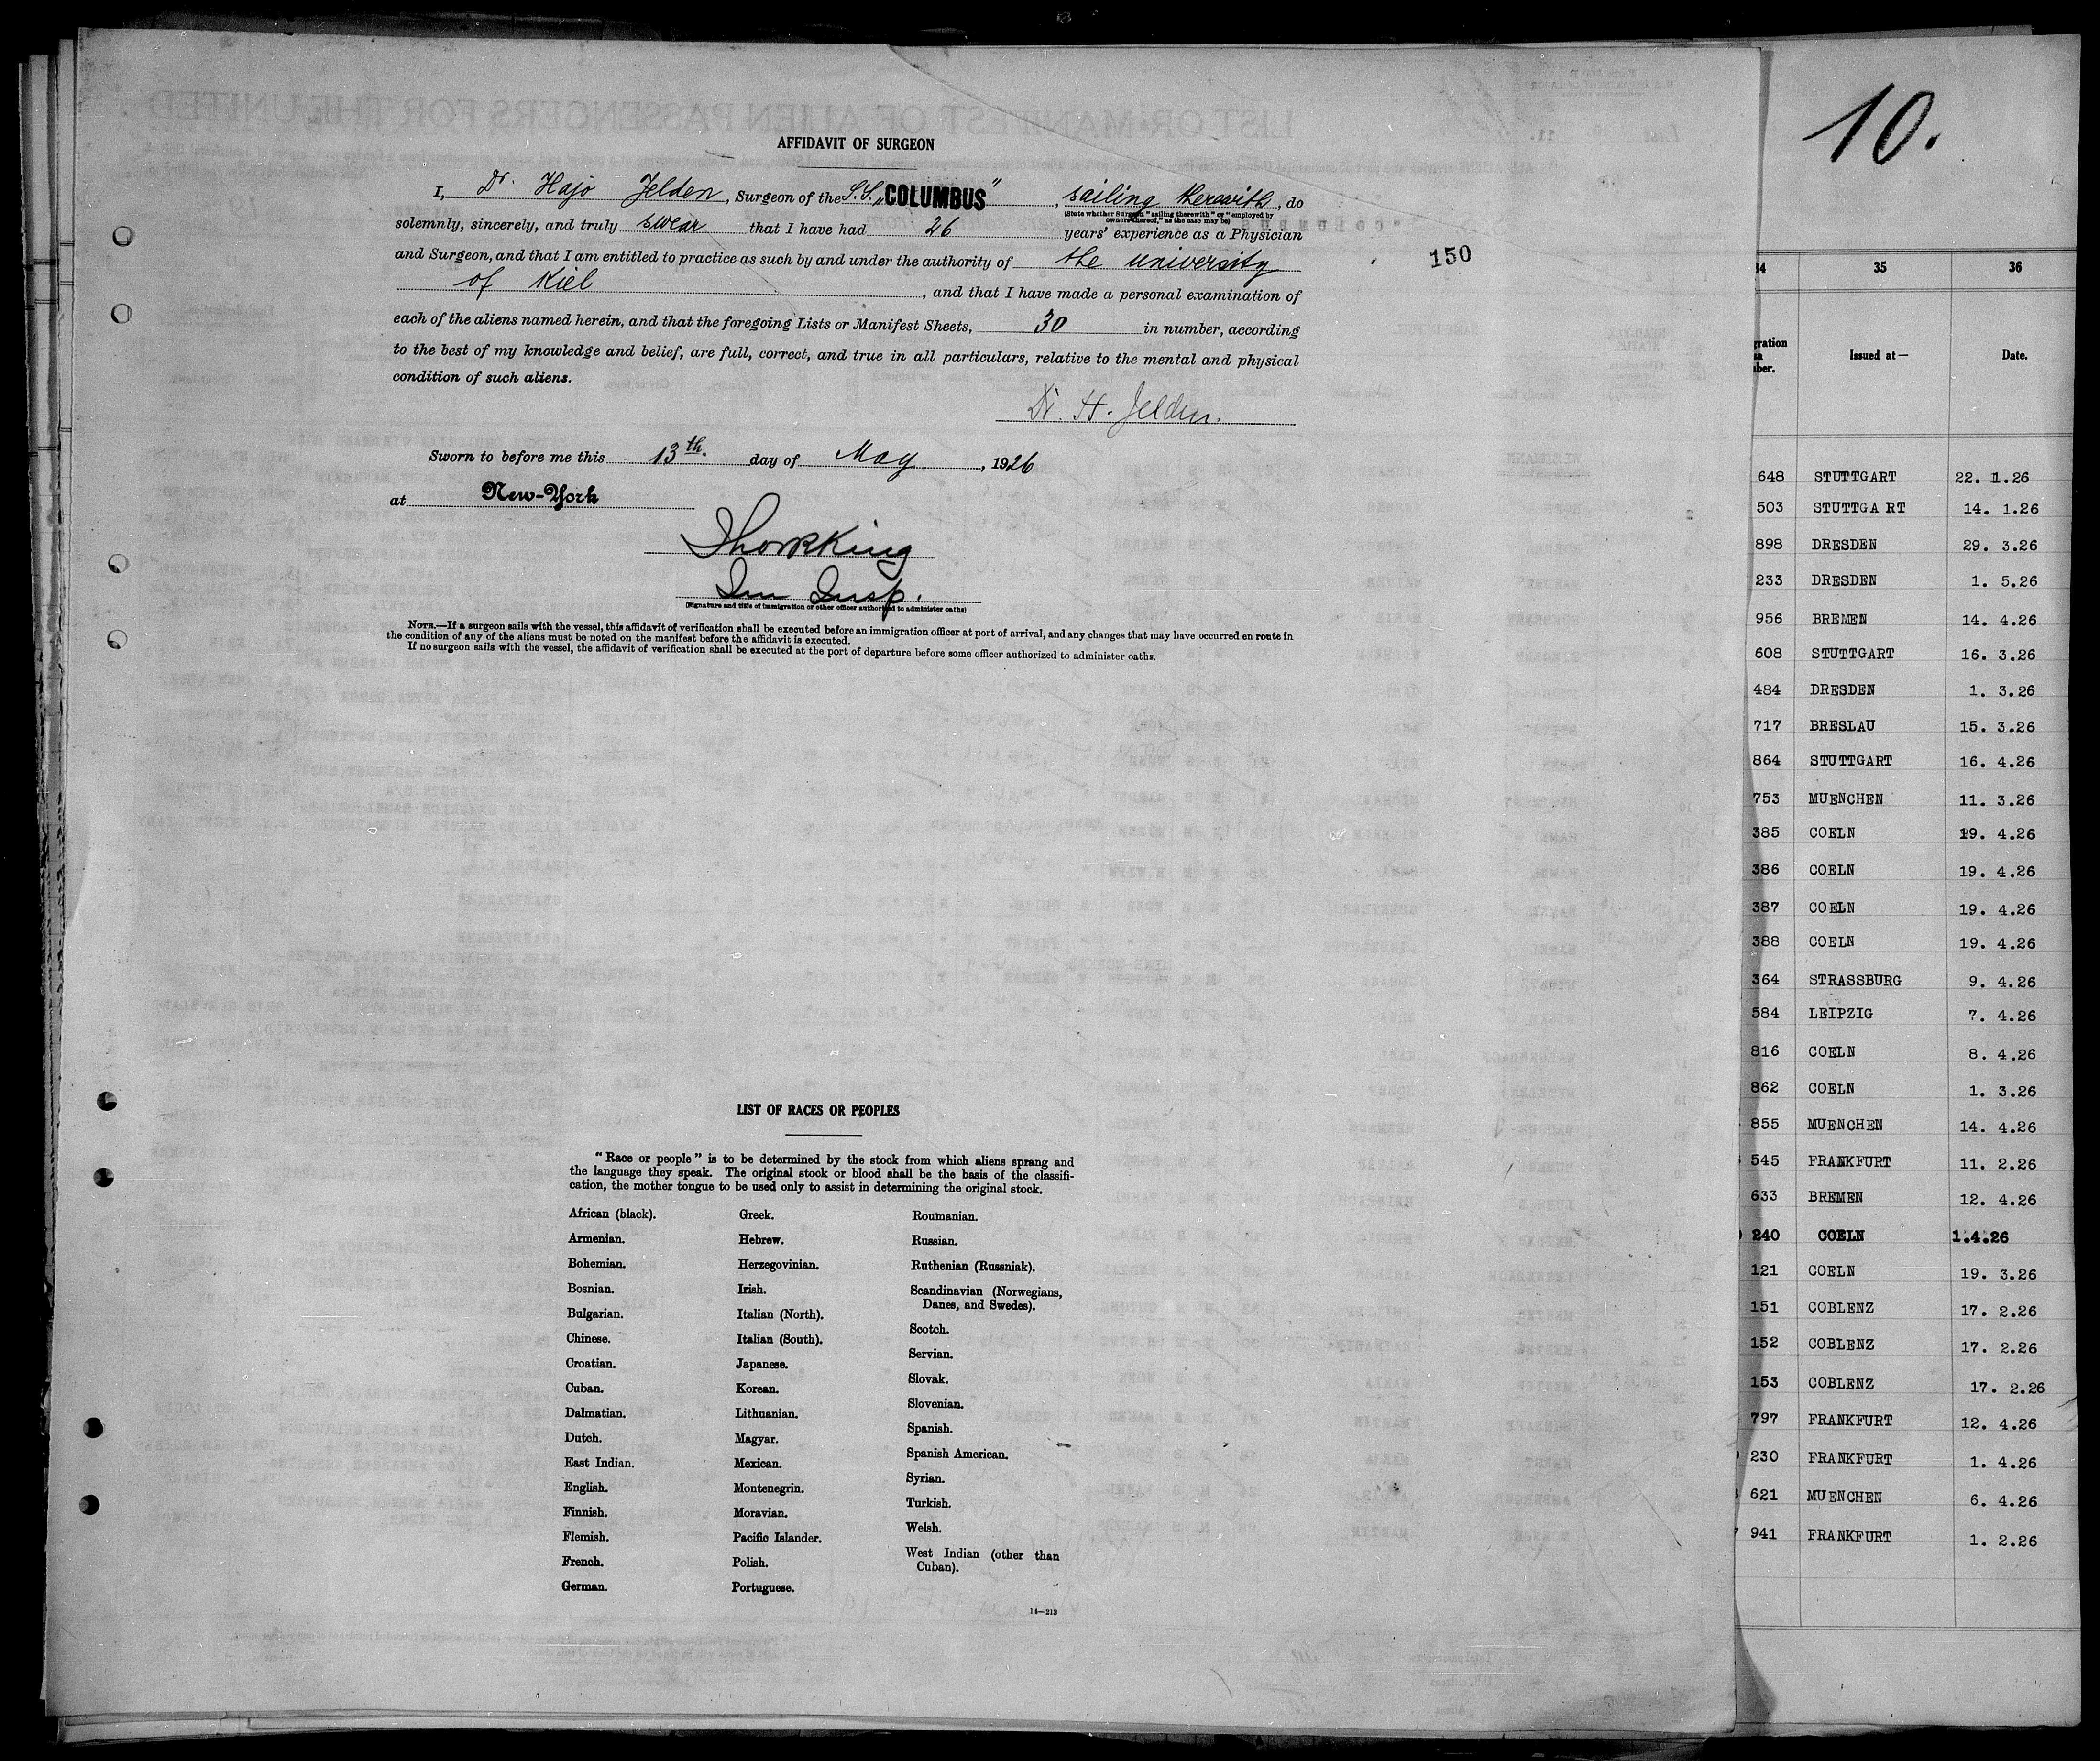 AFFIDAVIT OF SURGEON
I, Dr. Hajo Jelden, Surgeon of the S.S. „COLUMBUS", sailing therewith, do
(State whether Surgeon "sailing therewith" or "employed by owners thereof," as the case may be)
solemnly, sincerely, and truly swear that I have had 26 years' experience as a Physician
and Surgeon, and that I am entitled to practice as such by and under the authority of the university
of Kiel, and that I have made a personal examination of
each of the aliens named herein, and that the foregoing Lists or Manifest Sheets, 30 in number, according
to the best of my knowledge and belief, are full, correct, and true in all particulars, relative to the mental and physical
condition of such aliens.
Dr. H. Jelden.
Sworn to before me this 13th. day of May, 1926
at New-York
Imm Insp.
(Signature and title of immigration or other officer authorized to administer oaths)
NOTE.—If a surgeon sails with the vessel, this affidavit of verification shall be executed before an immigration officer at port of arrival, and any changes that may have occurred en route in
the condition of any of the aliens must be noted on the manifest before the affidavit is executed.
If no surgeon sails with the vessel, the affidavit of verification shall be executed at the port of departure before some officer authorized to administer oaths.
150
LIST OF RACES OR PEOPLES
"Race or people" is to be determined by the stock from which aliens sprang and
the language they speak. The original stock or blood shall be the basis of the classifi-
cation, the mother tongue to be used only to assist in determining the original stock.
African (black).
Armenian.
Bohemian.
Bosnian.
Bulgarian.
Chinese.
Croatian.
Cuban.
Dalmatian.
Dutch.
East Indian.
English.
Finnish.
Flemish.
French.
German.
Greek.
Hebrew.
Herzegovinian.
Irish.
Italian (North).
Italian (South).
Japanese.
Korean.
Lithuanian.
Magyar.
Mexican.
Montenegrin.
Moravian.
Pacific Islander.
Polish.
Portuguese.
Roumanian.
Russian.
Ruthenian (Russniak).
Scandinavian (Norwegians,
Danes, and Swedes).
Scotch.
Servian.
Slovak.
Slovenian.
Spanish.
Spanish American.
Syrian.
Turkish.
Welsh.
West Indian (other than
Cuban).
14—213
10.
34 35 36
gration
ber. Issued at— Date.
648 STUTTGART 22. 1.26
503 STUTTGA RT 14. 1.26
898 DRESDEN 29. 3.26
233 DRESDEN 1. 5.26
956 BREMEN 14. 4.26
608 STUTTGART 16. 3.26
484 DRESDEN 1. 3.26
717 BRESLAU 15. 3.26
864 STUTTGART 16. 4.26
753 MUENCHEN 11. 3.26
385 COELN 19. 4.26
386 COELN 19. 4.26
387 COELN 19. 4.26
388 COELN 19. 4.26
364 STRASSBURG 9. 4.26
584 LEIPZIG 7. 4.26
816 COELN 8. 4.26
862 COELN 1. 3.26
855 MUENCHEN 14. 4.26
545 FRANKFURT 11. 2.26
633 BREMEN 12. 4.26
240 COELN 1.4.26
121 COELN 19. 3.26
151 COBLENZ 17. 2.26
152 COBLENZ 17. 2.26
153 COBLENZ 17. 2.26
797 FRANKFURT 12. 4.26
230 FRANKFURT 1. 4.26
621 MUENCHEN 6. 4.26
941 FRANKFURT 1. 2.26